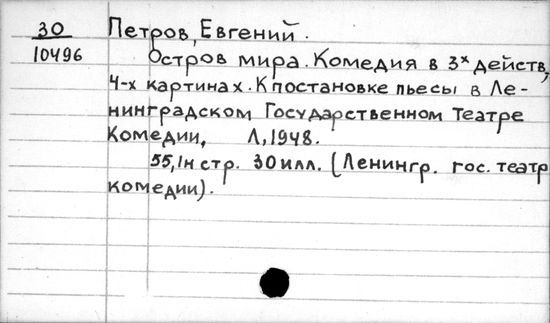 30
10496
Петров, Евгений.
Остров мира. Комедия в 3х действ,
4-х картинах. К постановке пьесы в Ле-
нинградском Государственном Театре
Комедии, Л, 1948.
55, 1н стр. 30 илл. (Ленингр. гос. театр
комедии).